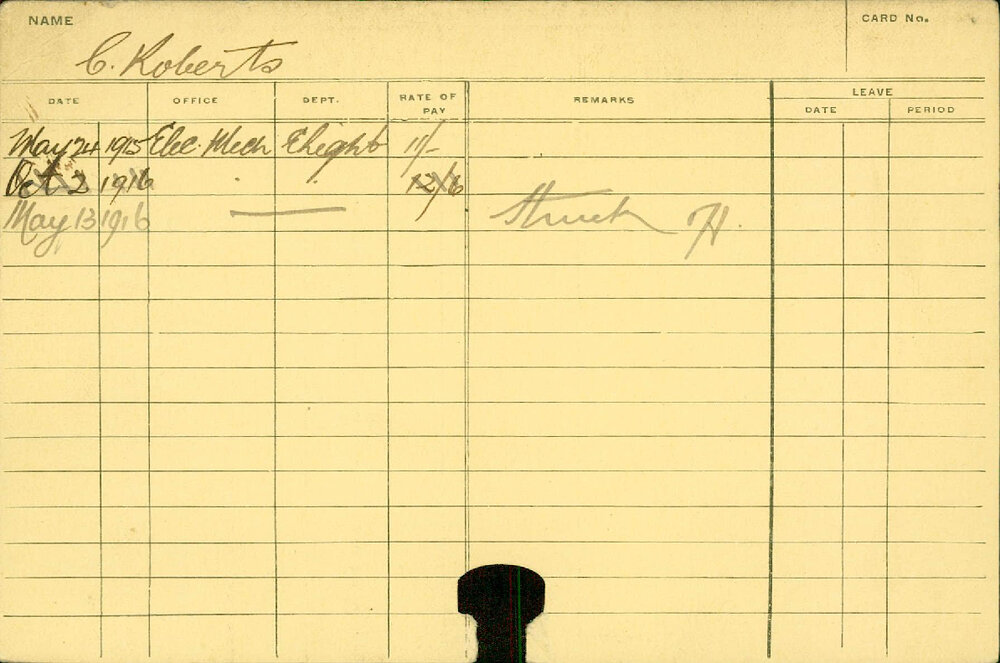 NAME
CARD No.
C. Roberts
DATE OFFICE DEPT. RATE OF PAY REMARKS LEAVE
DATE PERIOD
May 24 1915 Elec. Mech Elight 11/-
Oct 2 1916 " " 12/6
May 13 1916 — Struck off.